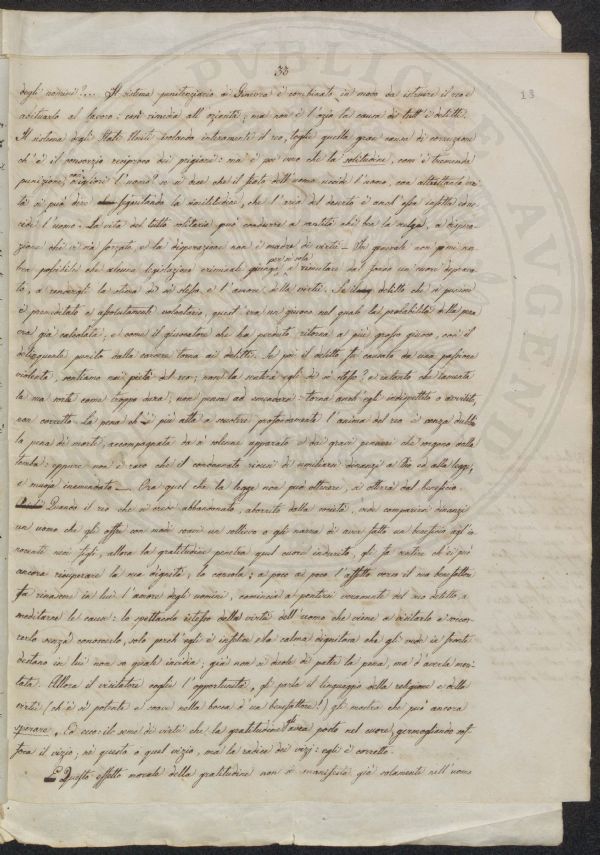 33
13
degli uomini?... Il sistema penitenziario di Ginevra è combinato in modo da istruire il reo e
abituarlo al lavoro: così rimedia all'oziosità; ma non è l'ozio la causa di tutt'i delitti.
Il sistema degli Stati Uniti isolando interamente il reo, toglie quella gran causa di corruzione
ch'è il consorzio reciproco dei prigioni: ma è poi vero che la solitudine, com'è tremenda
punizione, migliori l'uomo? se si dice che il fiato dell'uomo uccide l'uomo, con altrettanta veri
tà si può dire seguitando la similitudine, che l'aria del deserto è anch'essa infetta ed uc-
cide l'uomo. La vita del tutto solitaria può condurre a santità chi la scelga, a dispera-
zione chi vi sia forzato, e la disperazione non è madre di virtù — In generale non parmi no-
bra possibile che alcuna legislazione criminale giunga per sè sola a rimutare dal fondo un cuore deprava
to, a rendergli la stima di sè stesso e l'amore della virtù. Se il delitto che si punisce
è premeditato e assolutamente volontario, quest'era un giuoco nel quale la probabilità della pena
era già calcolata; e come il giuocatore che ha perduto, ritorna a più grosso giuoco, così il
delinquente punito dalla carcere torna ai delitti. Se poi il delitto fu causato da una passione
violenta, sentiamo noi pietà del reo; non la sentirà egli di sè stesso? e intanto che lamenta
la sua sorte come troppo dura, non pensa ad emendarsi: torna anch'egli indispettito o avvilito,
non corretto. La pena ch'è più atta a scuotere profondamente l'anima del reo è senza dubbio
la pena di morte, accompagnata da sì solenne apparato e dai gravi pensieri che sorgono dalla
tomba: eppure non è raro che il condannato ricusi di umiliarsi dinanzi a Dio ed alla legge,
e muoja inemendato — Ora quel che la legge non può ottenere, si otterrà dal beneficio.
Quando il reo che si crede abbandonato, aborrito dalla società, vede comparirsi dinanzi
un uomo che gli offre con modi soavi un sollievo o gli narra di aver fatto un beneficio agl'in
nocenti suoi figli, allora la gratitudine penetra quel cuore indurito, gli fa sentire ch'ei può
ancora ricuperare la sua dignità, lo consola; a poco a poco l'affetto verso il suo benefattore
fa rinascere in lui l'amore degli uomini, comincia a pentirsi veramente del suo delitto, a
meditarne le cause: lo spettacolo istesso della virtù dell'uomo che viene a visitarlo a soccor-
rerlo senza conoscerlo, solo perch'egli è infelice, e la calma dignitosa che gli vede in fronte
destano in lui non so quale invidia; già non si duole di patir la pena, ma d'averla meri-
tata. Allora il visitatore coglie l'opportunità, gli parla il linguaggio della religione e della
virtù (ch'è sì potente e soave nella bocca d'un benefattore!) gli mostra che può ancora
sperare. Ed ecco: il seme di virtù che la gratitudine gli avea posto nel cuore, germogliando sof
foca il vizio; nè questo o quel vizio, ma la radice dei vizj: egli è corretto.
Questo effetto morale della gratitudine non si manifesta già solamente nell'uomo